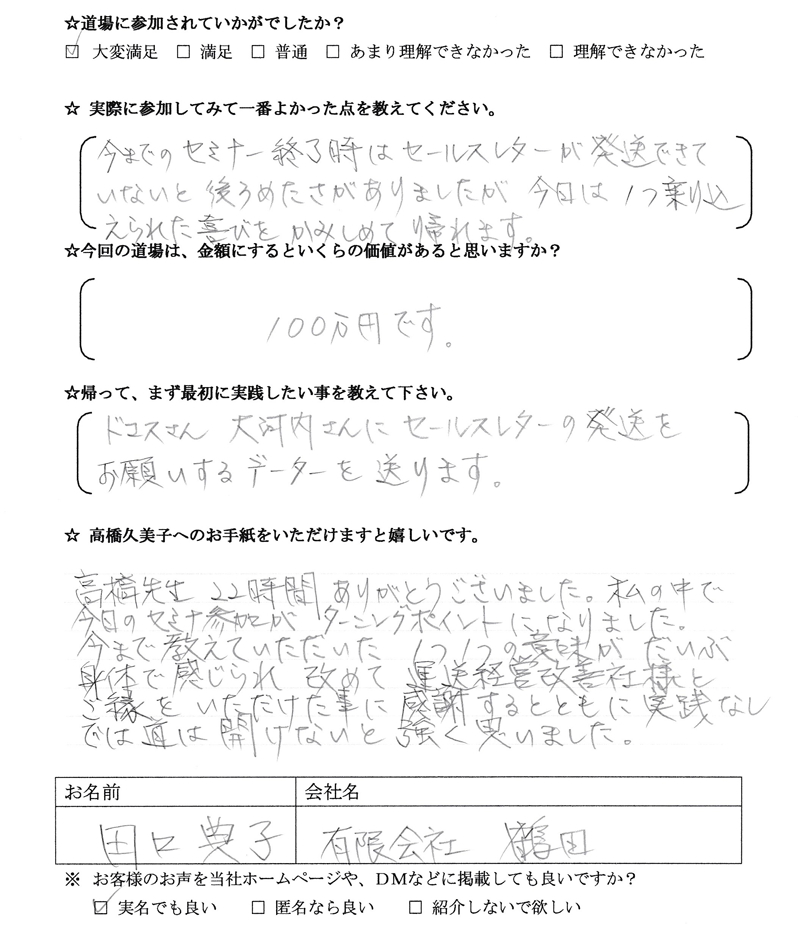 ☆道場に参加されていかがでしたか？
☑ 大変満足 □ 満足 □ 普通 □ あまり理解できなかった □ 理解できなかった
☆ 実際に参加してみて一番よかった点を教えてください。
今までのセミナー終了時はセールスレターが発送できて
いないと後ろめたさがありましたが 今日は1つ乗り込
えられた喜びをかみしめて帰れます。
☆今回の道場は、金額にするといくらの価値があると思いますか？
100万円です。
☆帰って、まず最初に実践したい事を教えて下さい。
ドコスさん 大河内さんにセールスレターの発送を
お願いするデーターを送ります。
☆ 高橋久美子へのお手紙をいただけますと嬉しいです。
高橋先生 22時間ありがとうございました。私の中で
今日のセミナ参加がターニングポイントになりました。
今まで教えていただいた 1つ1つの意味がだいぶ
身体で感じられ 改めて運送経営改善社様と
ご縁をいただけた事に感謝するとともに実践なし
では道は開けないと強く思いました。
お名前 会社名
田口典子 有限会社 鶴田
※ お客様のお声を当社ホームページや、DMなどに掲載しても良いですか？
☑ 実名でも良い □ 匿名なら良い □ 紹介しないで欲しい